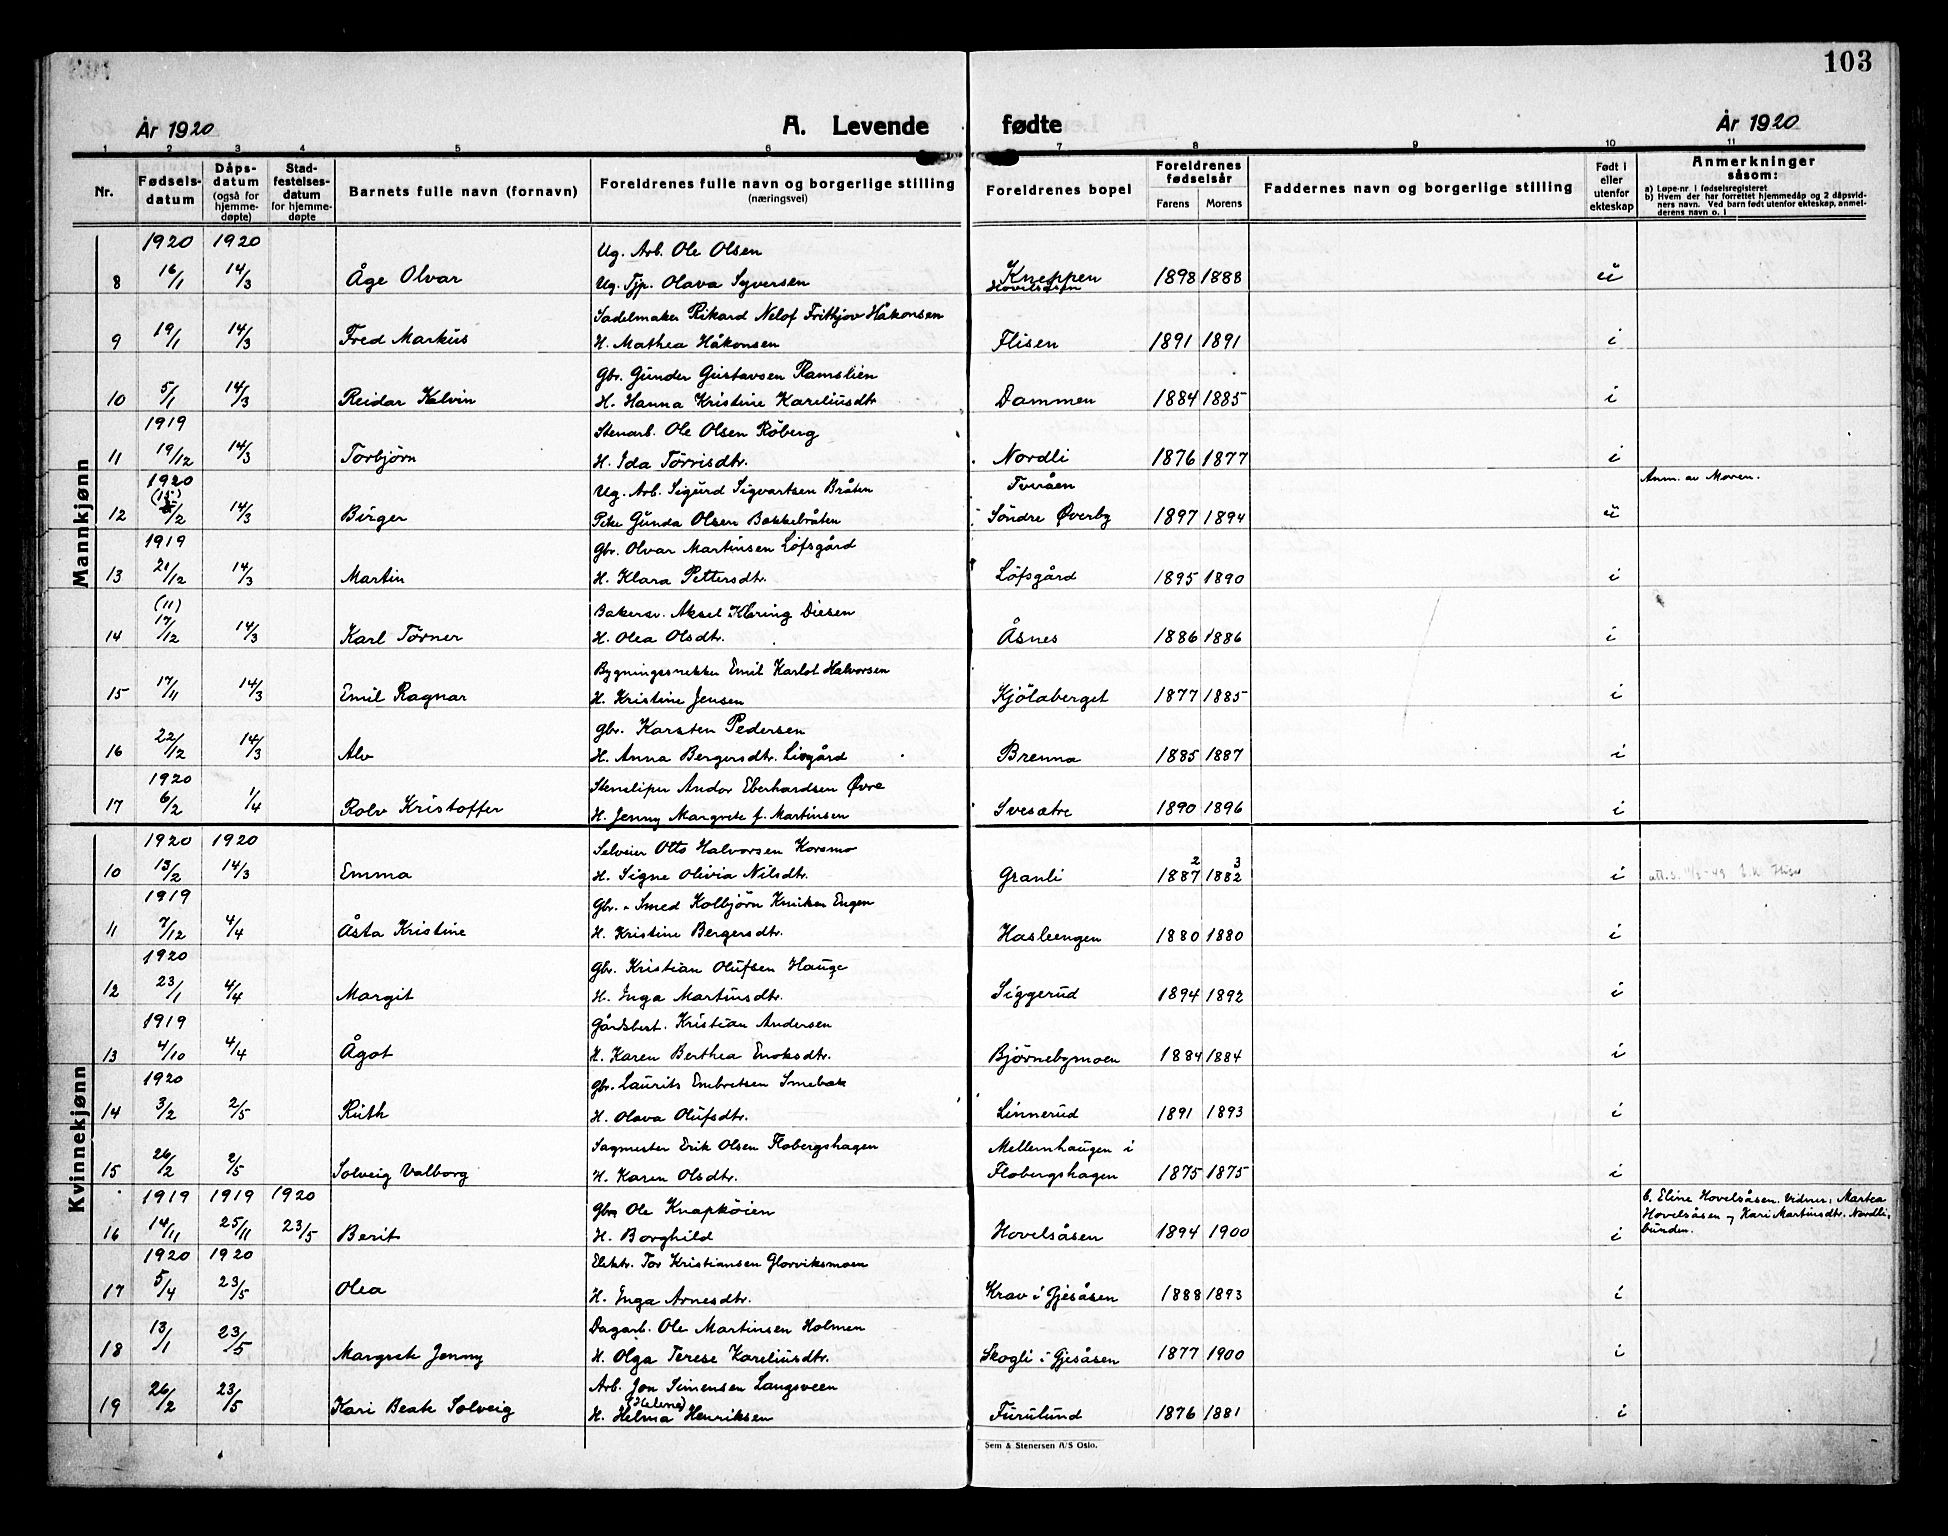 103
År 1920 A. Levende fødte År 1920
1 2 3 4 5 6 7 8 9 10 11
Nr. Fødsels-datum Dåps-datum (også for hjemme-døpte) Stad-festelses-datum for hjemme-døpte Barnets fulle navn (fornavn) Foreldrenes fulle navn og borgerlige stilling (næringsvei) Foreldrenes bopel Foreldrenes fødselsår Farens Morens Faddernes navn og borgerlige stilling Født i eller utenfor ekteskap Anmerkninger såsom:
a) Løpe-nr. i fødselsregisteret
b) Hvem der har forrettet hjemmedåp og 2 dåpsvid-
ners navn. Ved barn født utenfor ekteskap, anmel-
derens navn o. l
Mannkjønn
1920 1920 Ug. Arb. Ole Olsen
8 16/1 14/3 Åge Olvar Ug. Tjp. Olava Syversen Kneppen Hovelsåsen 1898 1888 u
Sadelmaker Rikard Nelof Frithjov Håkonsen
9 19/1 14/3 Fred Markus H. Mathea Håkonsen Flisen 1891 1891 i
Gbr. Gunder Gustavsen Ramslien
10 5/1 14/3 Reidar Kalvin H. Hanna Kristine Kareliusdtr Dammen 1884 1885 i
1919 Stenarb. Ole Olsen Röberg
11 19/12 14/3 Torbjörn H. Ida Törrisdtr. Nordli 1876 1877 i
1920 Ug. Arb. Sigurd Sigvartsen Bråten Tveråen Anm. av Moren.
12 (15) 5/2 14/3 Birger Pike Gunda Olsen Bakkebråten Söndre Øverby 1897 1894 u
1919 Gbr. Olvar Martinsen Löfsgård
13 21/12 14/3 Martin H. Klara Pettersdtr. Löfsgård 1895 1890 i
(11) Bakersv. Aksel Klæring Diesen
14 17/12 14/3 Karl Törner H. Olea Olsdtr. Åsnes 1886 1886 i
Bygningssnekker Emil Karlot Halvorsen
15 17/11 14/3 Emil Ragnar H. Kristine Jensen Kjölaberget 1877 1885 i
gbr. Karsten Pedersen
16 22/12 14/3 Alv H. Anna Bergersdtr. Lisgård Brenna 1885 1887 i
1920 Stensliper Andor Eberhardsen Øvre
17 6/2 1/4 Rolv Kristoffer H. Jenny Margrete f. Martinsen Svesætre 1890 1896 i
Kvinnekjønn
1920 1920 Selveier Otto Halvorsen Korsmo 2 3
10 13/2 14/3 Emma H. Signe Olivia Nilsdtr. Granli 1887 1882 i
1919 Gbr. - Smed Kolbjörn Knutsen Engen
11 7/12 4/4 Åsta Kristine H. Kristine Bergersdtr. Hasleengen 1880 1880 i
1920 Gbr. Kristian Olufsen Hauge
12 23/1 4/4 Margit H. Inga Martinsdtr. Siggerud 1894 1892 i
1919 Gårdsbest. Kristian Andersen
13 4/10 4/4 Ågot H. Karen Berthea Enoksdtr. Björnebymoen 1884 1884 i
1920 gbr. Laurits Embretsen Smebak
14 3/2 2/5 Ruth H. Olava Olufsdtr. Linnerud 1891 1893 i
Sagmester Erik Olsen Flobergshagen Mellemhaugen i
15 26/2 2/5 Solveig Valborg H. Karen Olsdtr. Flobergshagen 1875 1875 i
1919 1919 1920 gbr Ole Knapkøien b. Eline Hovelsåsen. Vidner: Martea
16 14/11 25/11 23/5 Berit H. Borghild Hovelsåsen 1894 1900 i Hovelsåsen og Kari Martinsdtr. Nordli,
bunden.
1920 1920 Elektr. Tor Kristiansen Glorviksmoen
17 5/4 23/5 Olea H. Inga Arnesdtr. Krav i Gjesåsen 1888 1893 i
Dagarb. Ole Martinsen Holmen
18 13/1 23/5 Margrete Jenny H. Olga Terese Kareliusdtr. Skogli i Gjesåsen 1877 1900 i
Arb. Jon Simensen Langsveen
(Helene)
19 26/2 23/5 Kari Beate Solveig H. Helma Henriksen Furulund 1876 1881 i
Sem & Stenersen A/S Oslo.